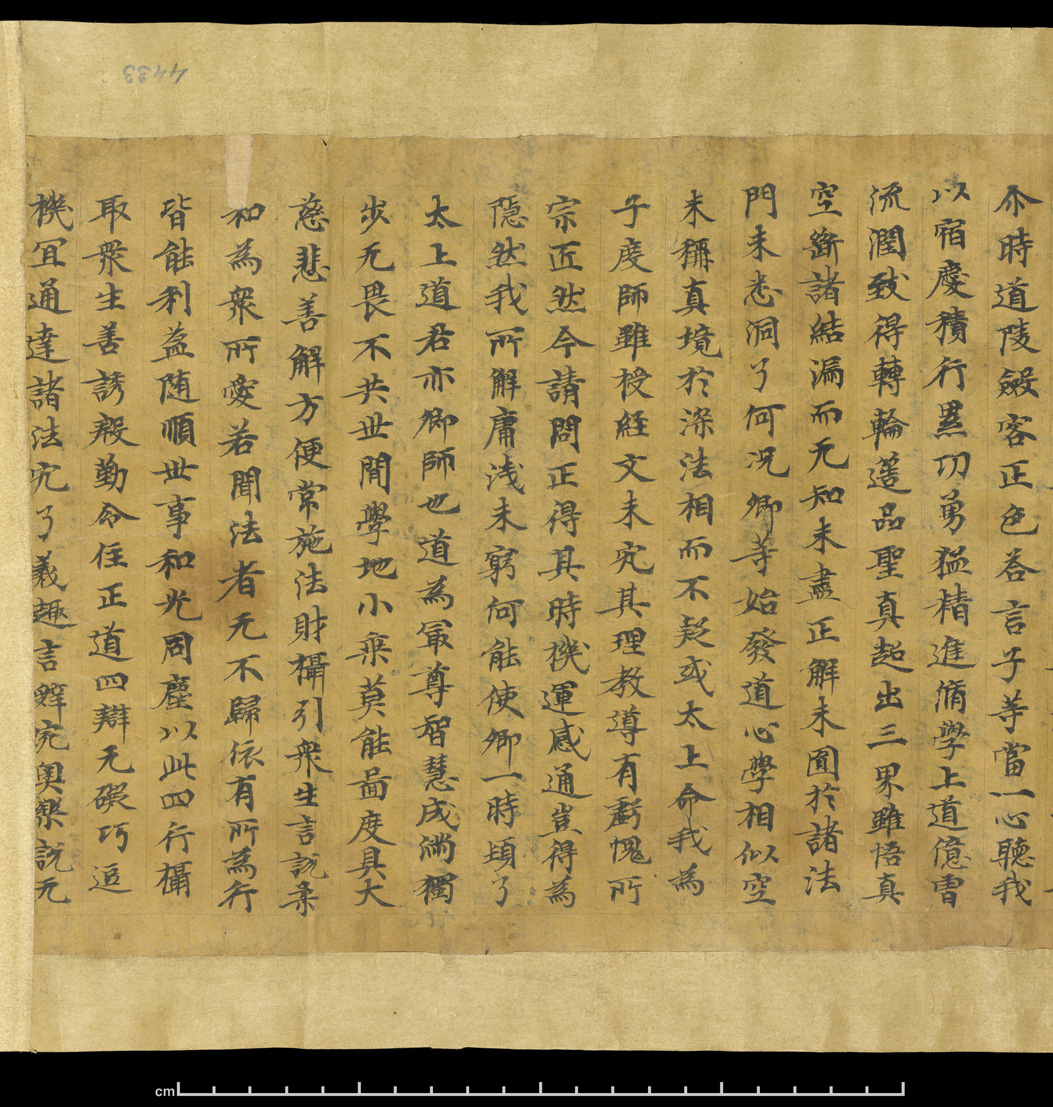 尒時道陵斂容正色荅言子等當一心聽我
以宿慶積行累功勇猛精進脩學上道億曹
流潤致得轉輪遥品聖真超出三界雖悟真
空斷諸結漏而无知未盡正解未圎於諸法
門未悉洞了何况卿等始發道心學相似空
未稱真境於深法相而不疑或太上命我為
子度師雖授經文未究其理教導有虧愧所
宗匠然今請問正得其時機運感通豈得為
隱然我所解庸淺未窮何能使卿一時頓了
太上道君亦卿師也道為冣尊智慧成滿獨
步无畏不共世間學地小乗莫能啚度具大
慈悲善解方便常施法財攝引衆生言説柔
和為衆所愛若聞法者无不歸依有所為行
皆能利益随順世事和光同塵以此四行攝
取衆生善誘殷勤令住正道四辯无礙巧逗
機冝通達諸法究了義趣言辝宛奥樂説无
4433
cm